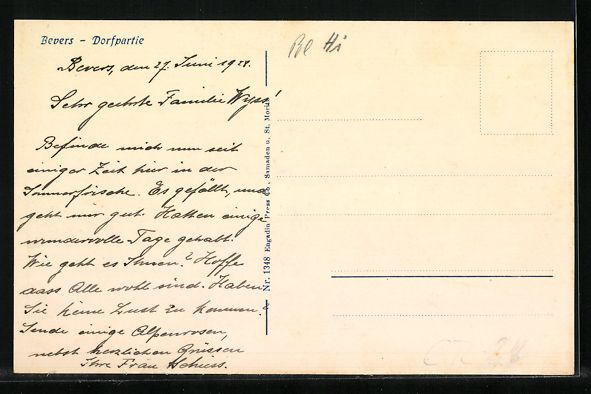 Bevers – Dorfpartie
Bevers, den 27. Juni 1921.
Sehr geehrte Familie Wyss!
Befinde mich nun seit
einiger Zeit hier in der
Sommerfrische. Es gefällt, und
geht mir gut. Hatten einige
wundervolle Tage gehabt.
Wie geht es Ihnen? Hoffe
dass Alle wohl sind. Haben
Sie keine Lust zu kommen.
Sende einige Alpenrosen,
nebst herzlichen Grüssen
Ihre Frau Schiess.
Nr. 1348 Engadin Press Co., Samaden u. St. Moritz
Be Hi